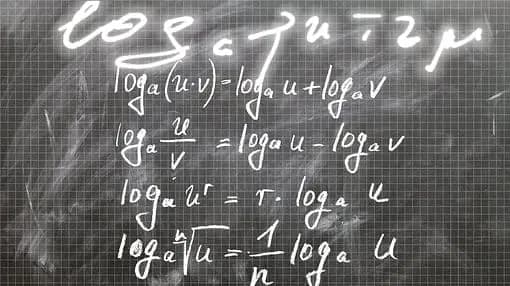 logₐ
logₐ(u·v)=logₐ u+logₐ v
logₐ u/v = logₐ u - logₐ v
logₐ uʳ = r · logₐ u
logₐ ⁿ√u = 1/n logₐ u